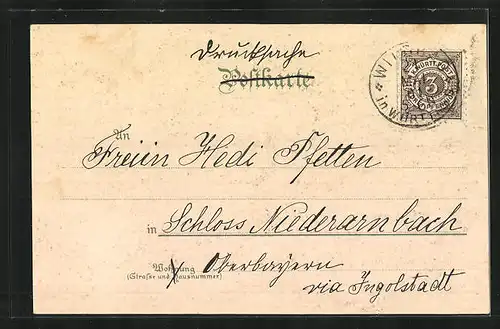 Drucksache
Postkarte
K. WÜRTT. POST
3
in WÜRTT
An
Freiin Hedi Pfetten
in Schloss Niederarnbach
Wohnung
(Straße und Hausnummer)
Oberbayern
via Ingolstadt